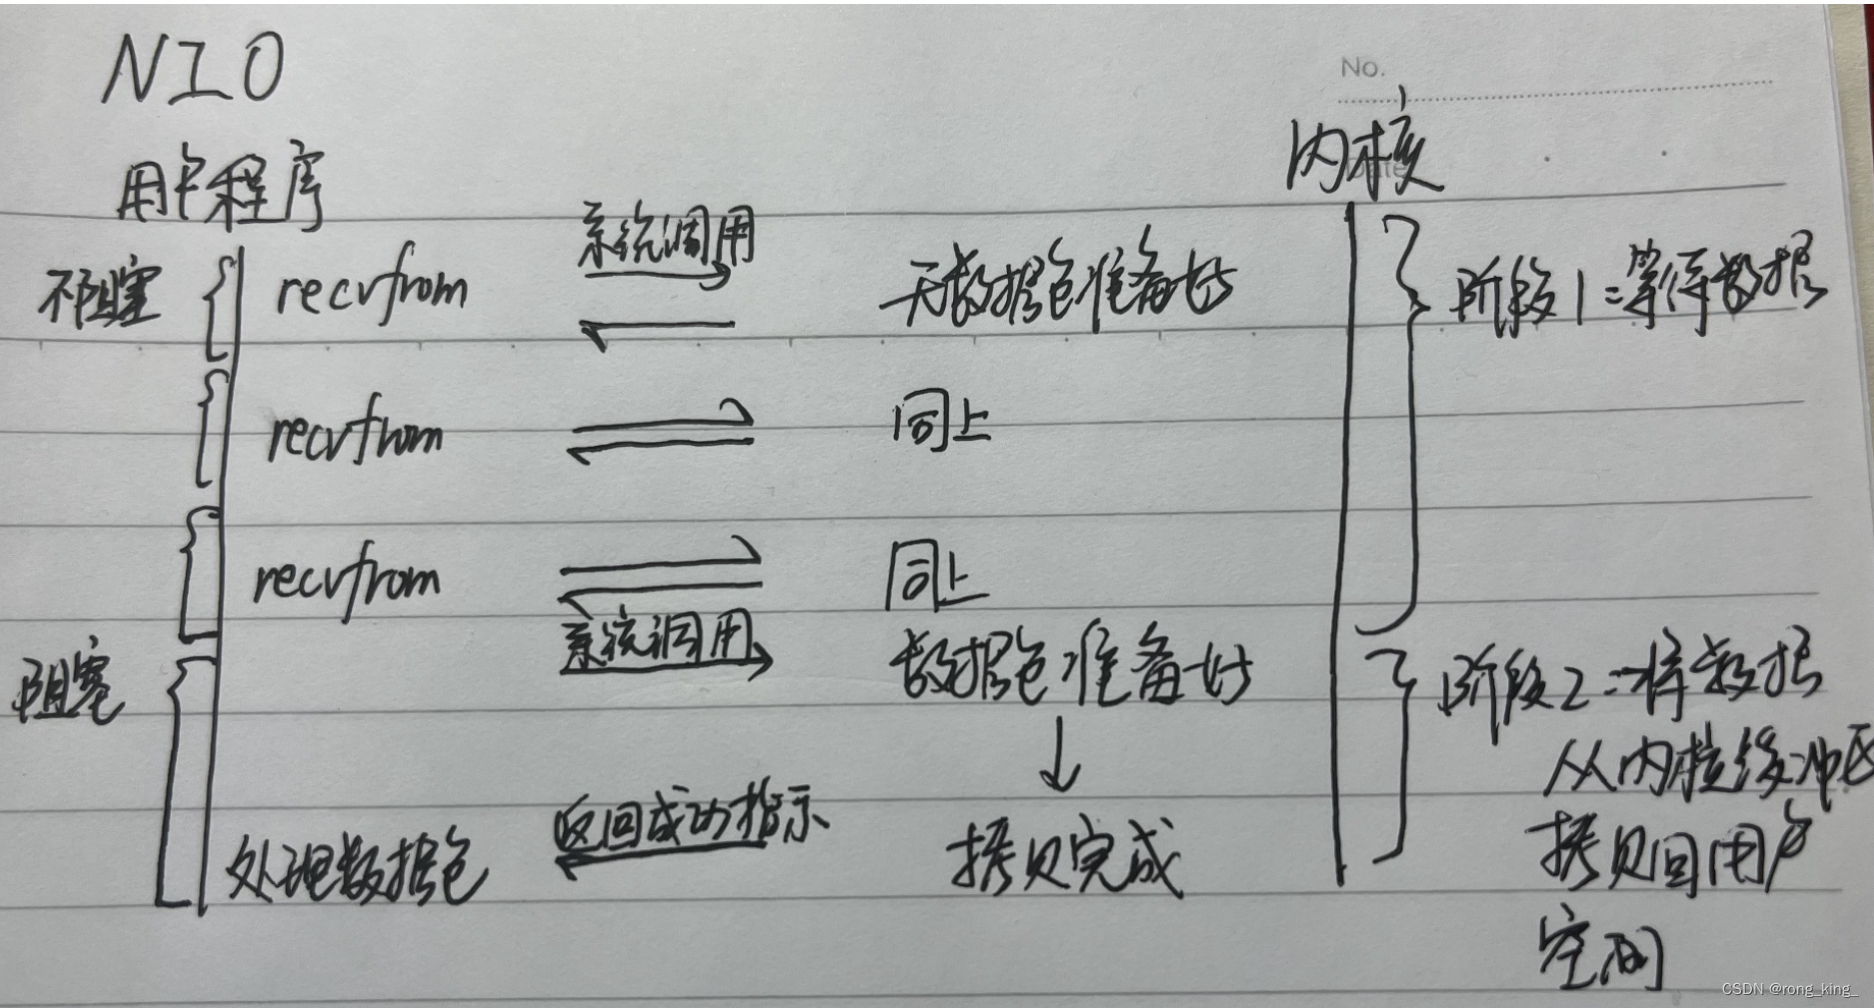 NIO
No.
内核
Date
用户程序
系统调用
不阻塞
recvfrom
无数据包准备好
阶段1:等待数据
recvfrom
同上
recvfrom
同上
系统调用
阻塞
数据包准备好
阶段2:将数据
从内核缓冲区
拷贝回用户
空间
返回成功指示
处理数据包
拷贝完成
CSDN @rong_king_